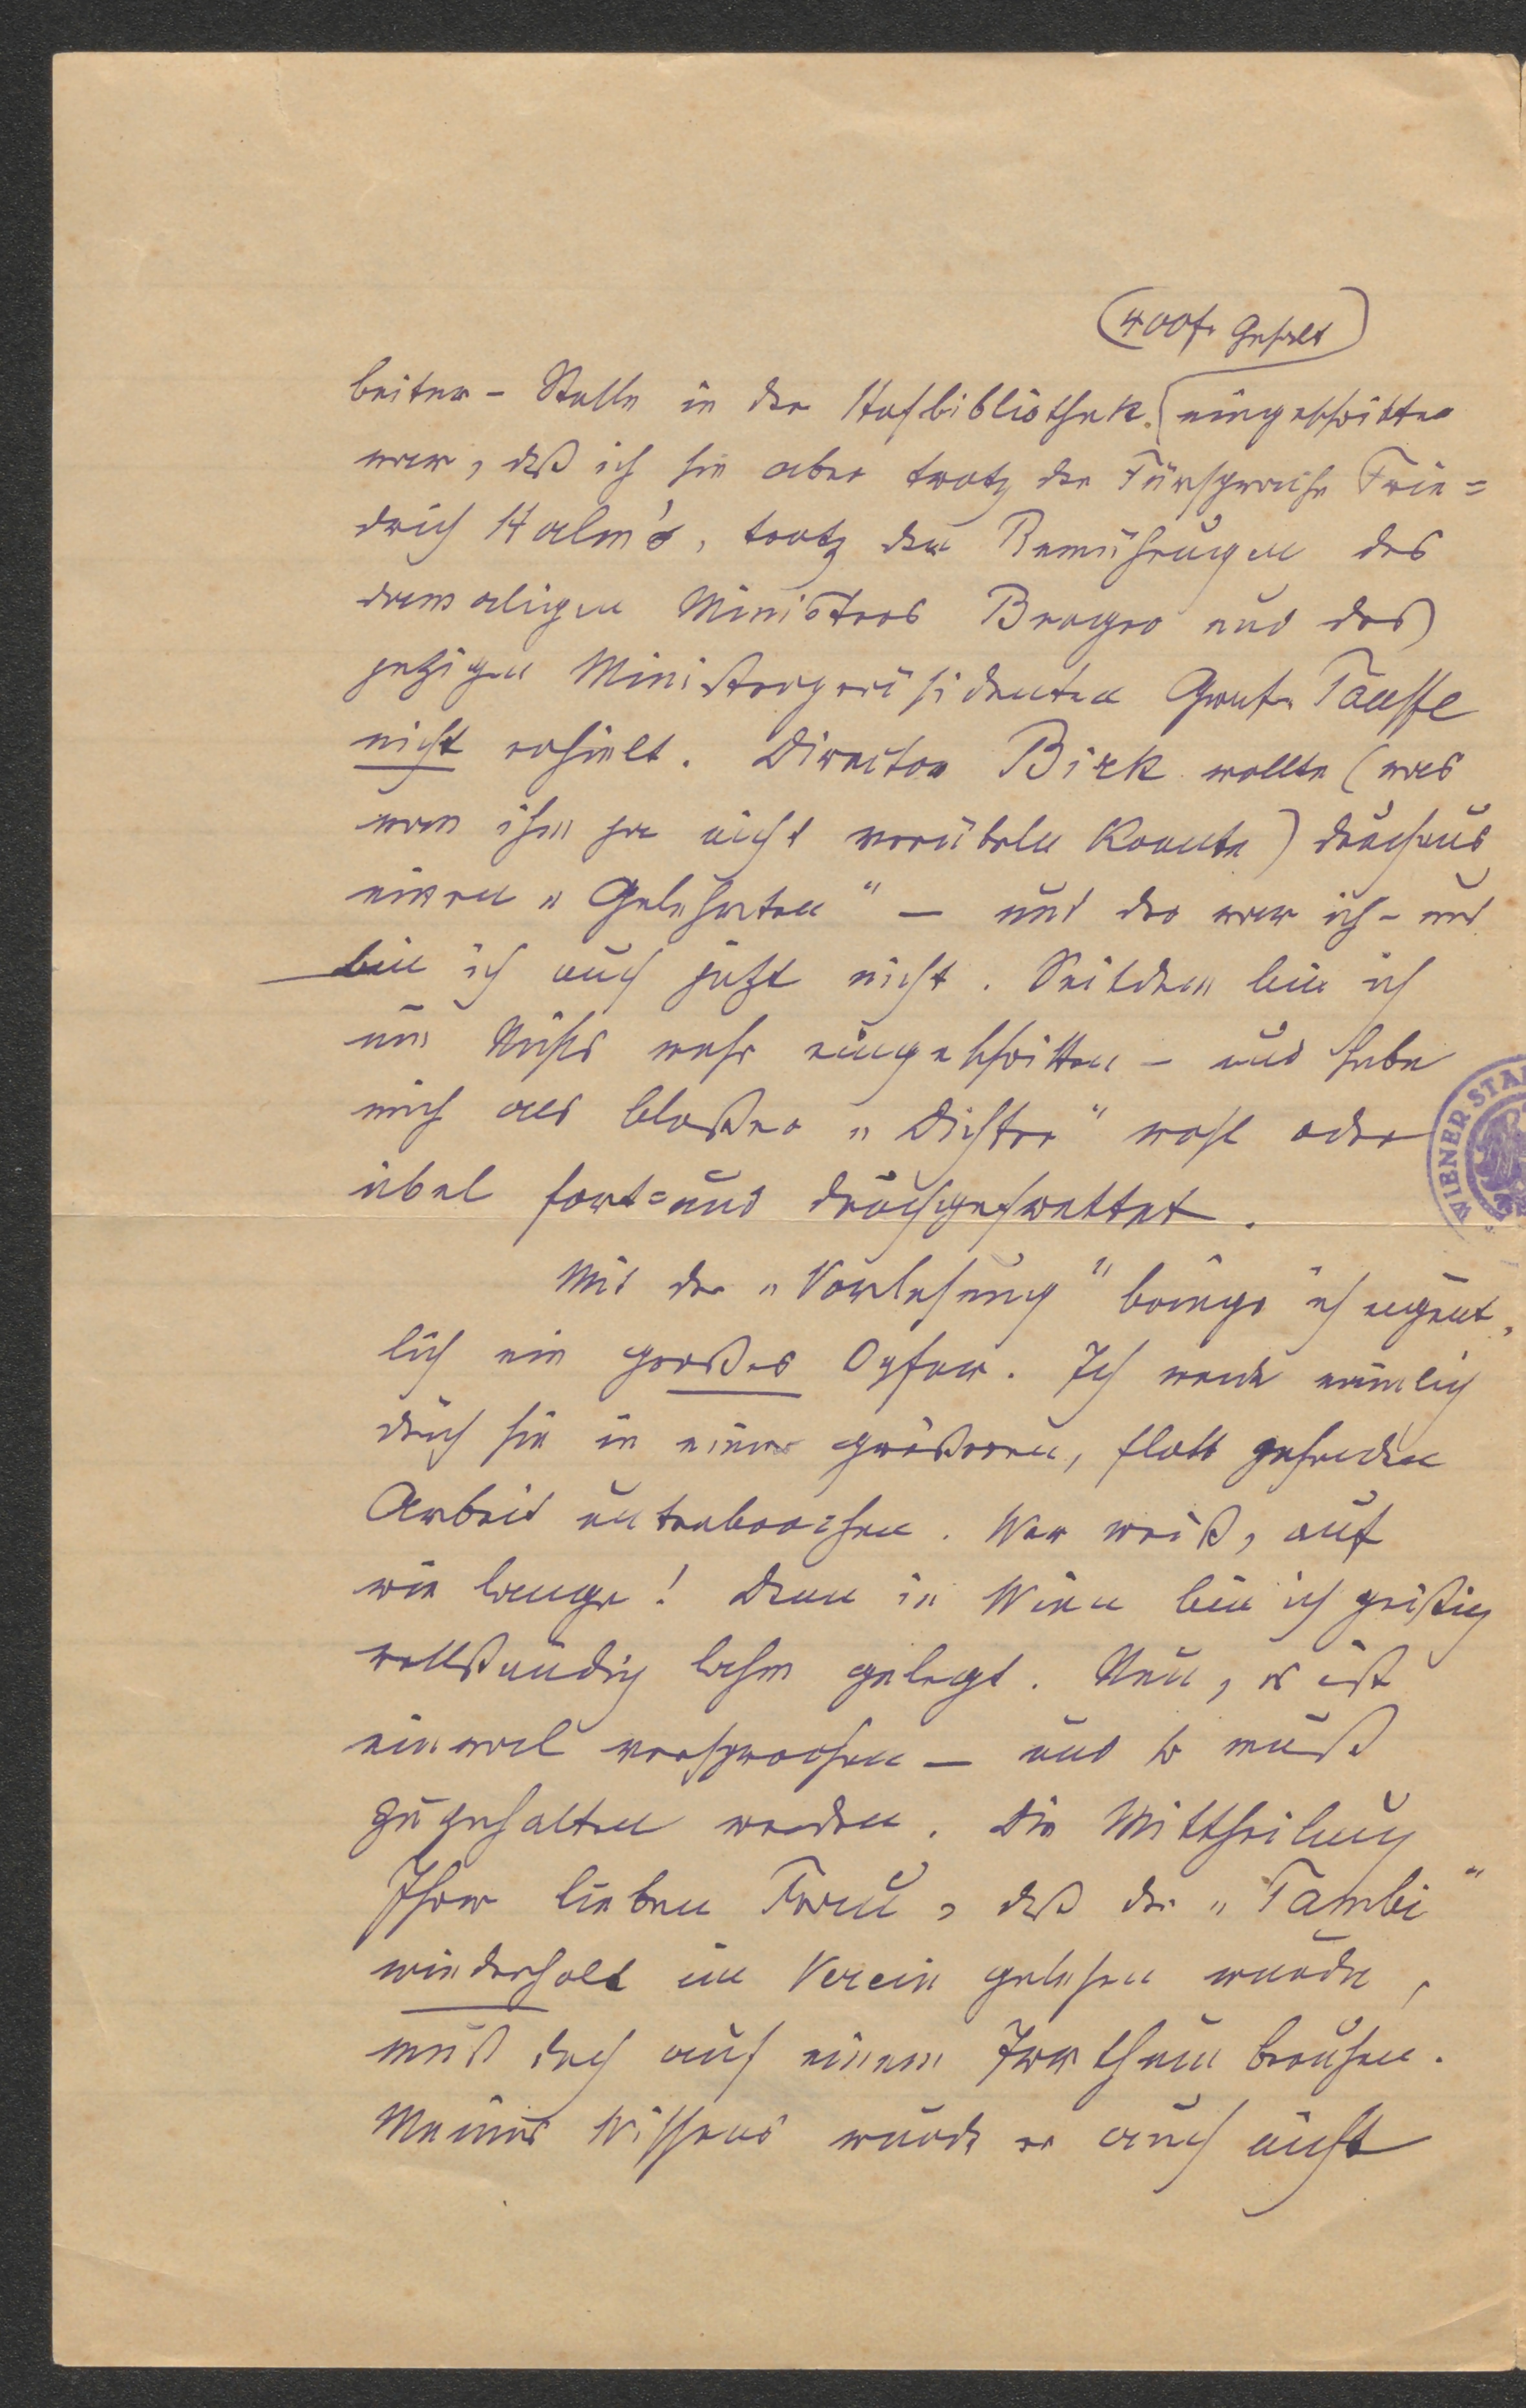 (400 f. Gehalt)
beiter-Stelle in der Hofbibliothek eingeschritten
war, daß ich sie aber trotz der Fürsprache Frie=
drich Halm's, trotz den Bemühungen des
damaligen Ministers Berger und des
jetzigen Ministerpräsidenten Graf Taaffe
nicht erhielt. Director Birk wollte (was
man ihm ja nicht verübeln konnte) durchaus
einen „Gelehrten“ — und das war ich - und
bin ich auch jetzt nicht. Seitdem bin ich
um Nichts mehr eingeschritten – und habe
mich als bloßer „Dichter“ wohl oder
übel fort= und durchgefrettet.
Mit der „Vorlesung“ bringe ich eigent„
lich ein großes Opfer. Ich werde nämlich
durch sie in einer größeren, flott gehenden
Arbeit unterbrochen. Wer weiß, auf
wie lange! Denn in Wien bin ich geistig
vollständig lahm gelegt. Nun, es ist
einmal versprochen — und so muß
zugehalten werden. Die Mittheilung
Ihrer lieben Frau, daß der „Tambi“
wiederholt im Verein gelesen wurde,
muß doch auf einem Irrthum beruhen.
Meines Wissens wurde er auch nicht
WIENER STA